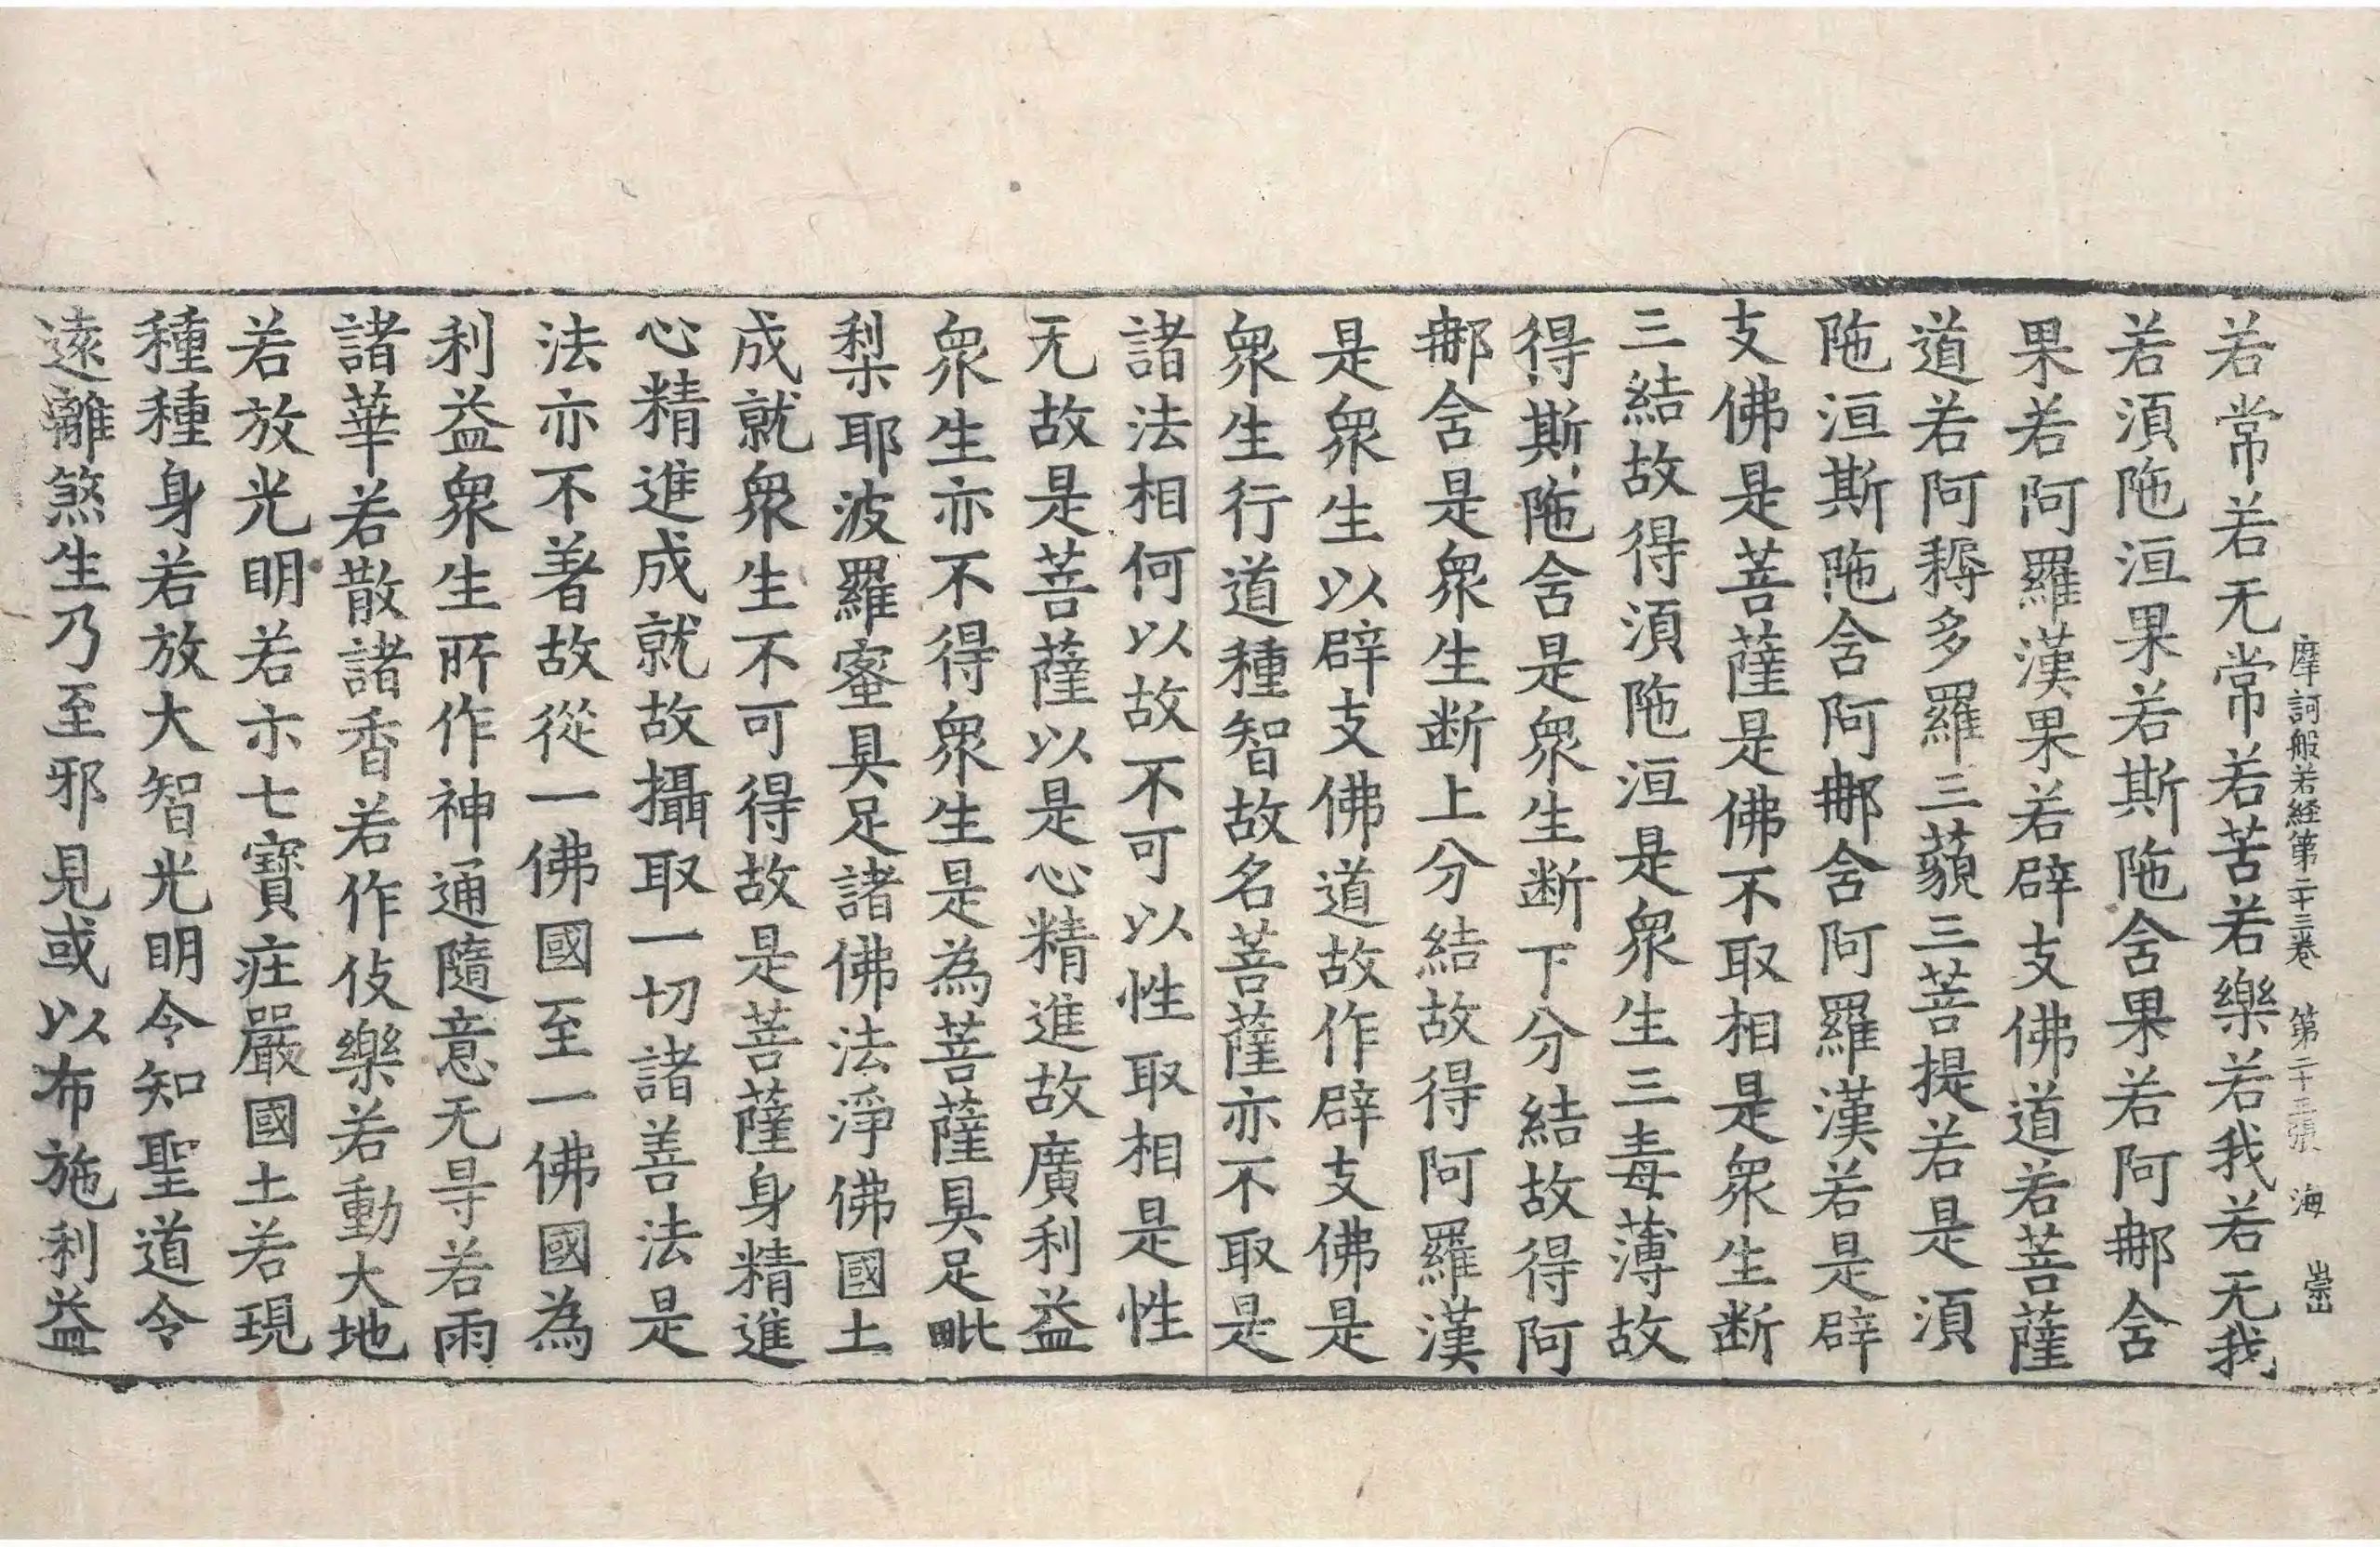 摩訶般若経第二十三卷　第二十三張　海　崗
若常若无常若苦若樂若我若无我
若湏陁洹果若斯陁含果若阿那含
果若阿羅漢果若辟支佛道若菩薩
道若阿耨多羅三藐三菩提若是湏
陁洹斯陁含阿那含阿羅漢若是辟
支佛是菩薩是佛不取相是衆生断
三結故得湏陁洹是衆生三毒薄故
得斯陁含是衆生断下分結故得阿
那含是衆生断上分結故得阿羅漢
是衆生以辟支佛道故作辟支佛是
衆生行道種智故名菩薩亦不取是
諸法相何以故不可以性取相是性
无故是菩薩以是心精進故廣利益
衆生亦不得衆生是為菩薩具足毗
梨耶波羅蜜具足諸佛法淨佛國土
成就衆生不可得故是菩薩身精進
心精進成就故攝取一切諸善法是
法亦不著故從一佛國至一佛國為
利益衆生所作神通隨意无㝵若雨
諸華若散諸香若作伎樂若動大地
若放光明若示七寶㽵嚴國土若現
種種身若放大智光明令知聖道令
遠離煞生乃至邪見或以布施利益